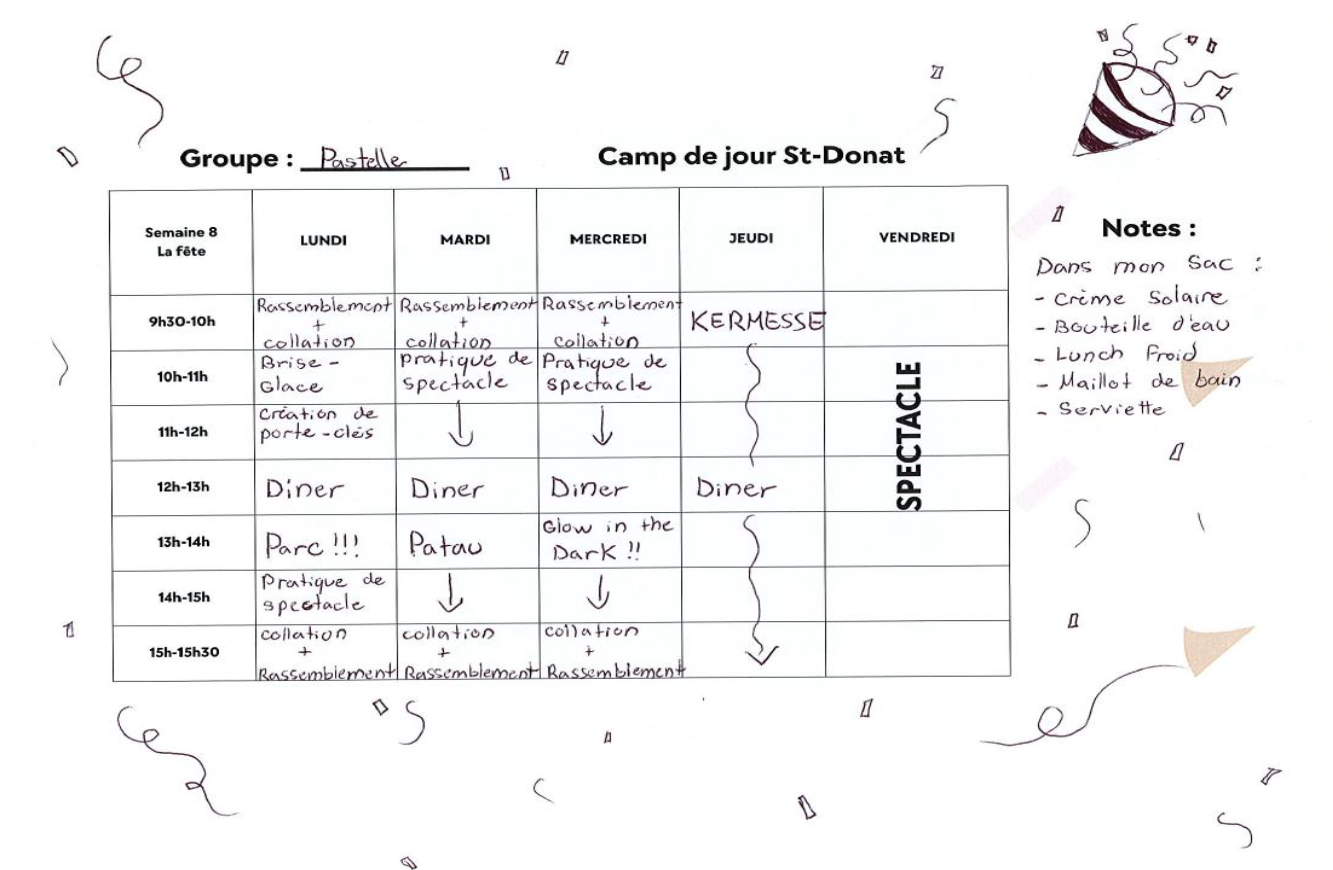 Groupe : Pastelle
Camp de jour St-Donat
Semaine 8
La fête
LUNDI
MARDI
MERCREDI
JEUDI
VENDREDI
9h30-10h
Rassemblement
+
collation
Rassemblement
+
collation
Rassemblement
+
collation
KERMESSE
10h-11h
Brise-
Glace
pratique de
spectacle
Pratique de
spectacle
SPECTACLE
11h-12h
Création de
porte-clés
12h-13h
Diner
Diner
Diner
Diner
13h-14h
Parc !!!
Patau
Glow in the
Dark !!
14h-15h
Pratique de
spectacle
15h-15h30
collation
+
Rassemblement
collation
+
Rassemblement
collation
+
Rassemblement
Notes :
Dans mon Sac :
- Crème Solaire
- Bouteille d'eau
- Lunch Froid
- Maillot de bain
- Serviette